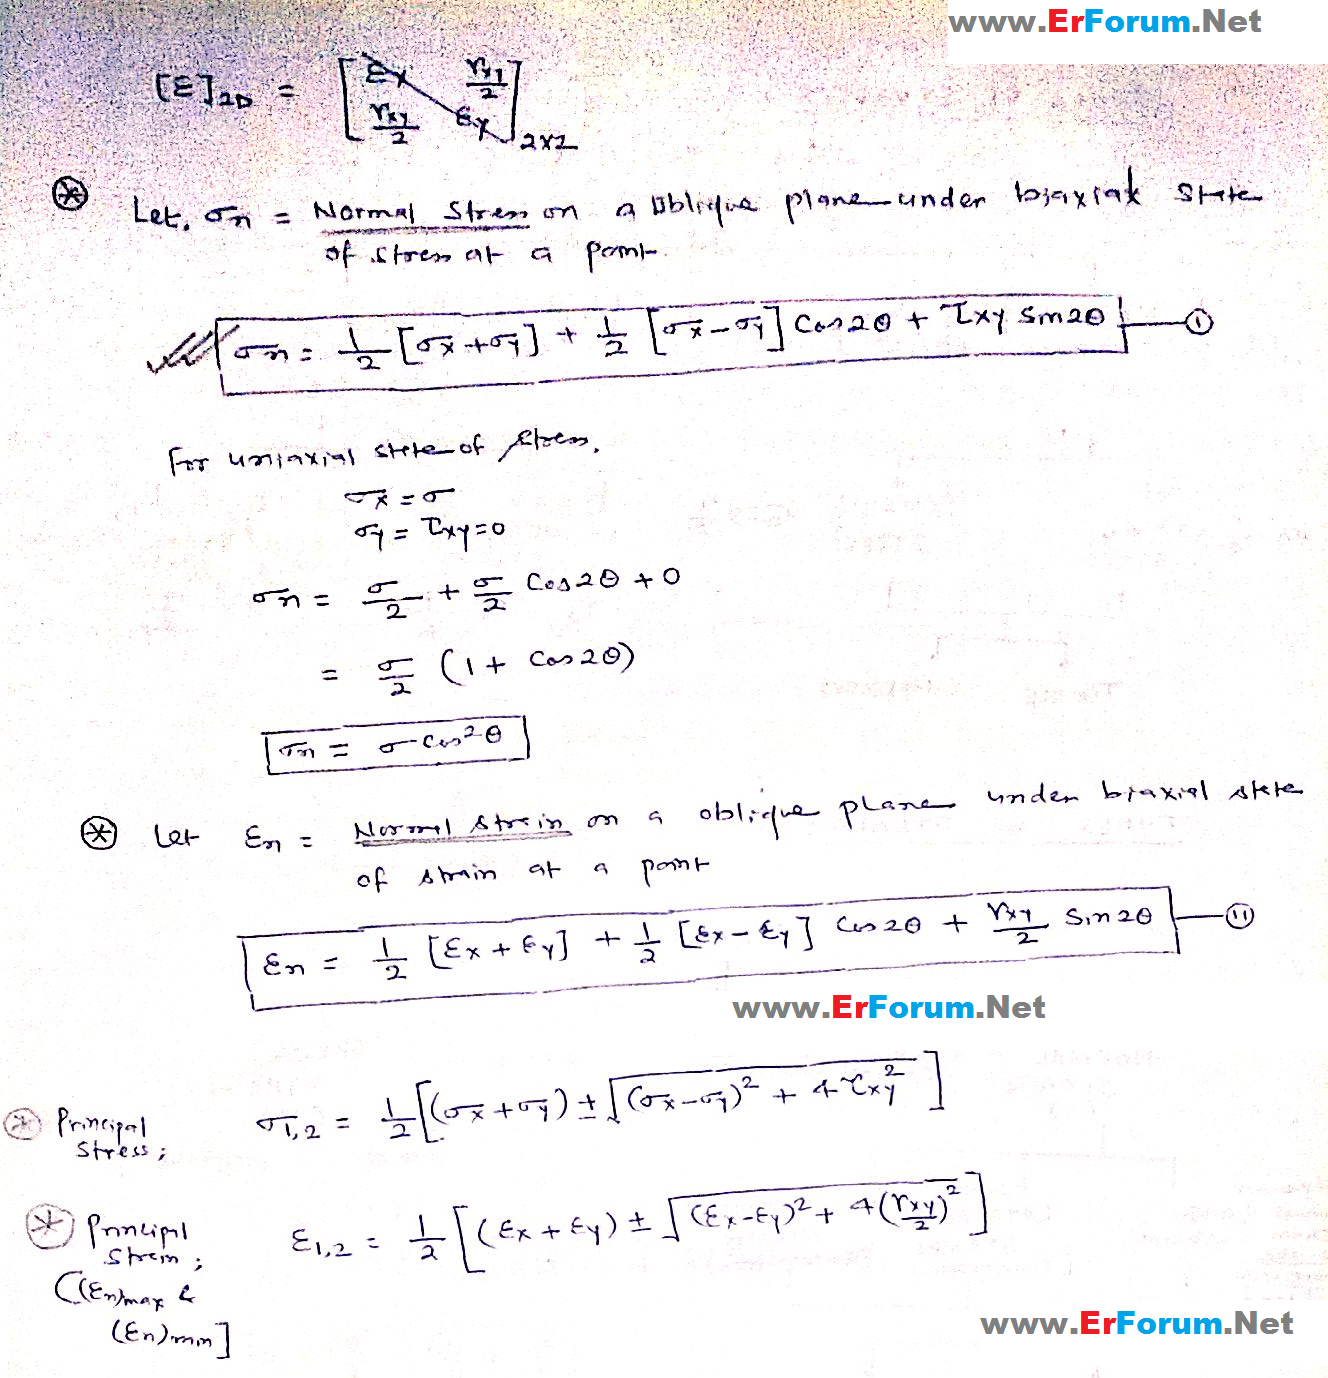 www.ErForum.Net
[ε]₂D = [εx γxy/2
γxy/2 εy]₂ₓ₂
⊛ Let, σn = Normal Stress on a Oblique plane under biaxial State
of stress at a point.
σn = 1/2 [σx + σy] + 1/2 [σx - σy] Cos2θ + τxy Sin2θ — (1)
For uniaxial state of stress,
σx = σ
σy = τxy = 0
σn = σ/2 + σ/2 Cos2θ + 0
= σ/2 (1 + Cos2θ)
σn = σ Cos²θ
⊛ Let εn = Normal strain on a oblique plane under biaxial state
of strain at a point
εn = 1/2 [εx + εy] + 1/2 [εx - εy] Cos2θ + γxy/2 Sin2θ — (11)
www.ErForum.Net
⊛ Principal Stress; σ1,2 = 1/2 [(σx + σy) ± √((σx - σy)² + 4τxy²)]
⊛ Principal Strain; ε1,2 = 1/2 [(εx + εy) ± √((εx - εy)² + 4(γxy/2)²)]
[(εn)max &
(εn)min]
www.ErForum.Net